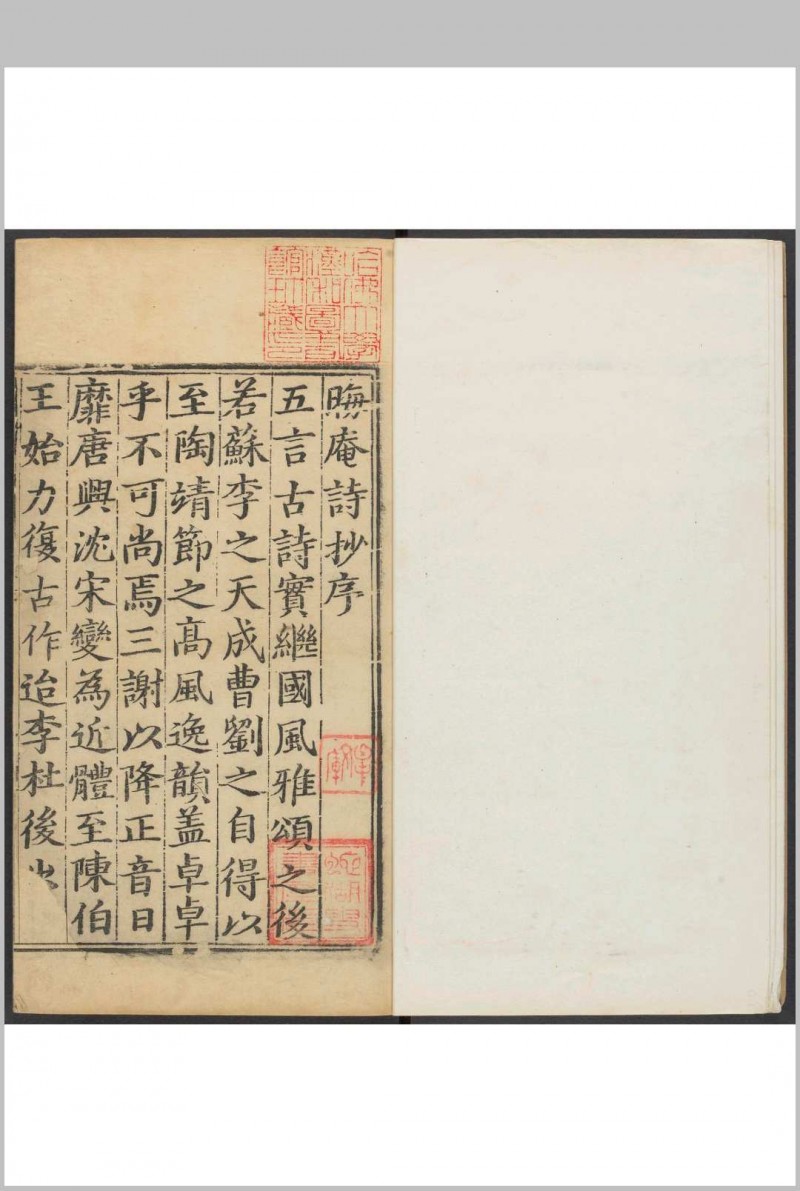 晦庵詩抄序
五言古詩實繼國風雅頌之後
若蘇李之天成曹劉之自得以
至陶靖節之高風逸韻蓋卓卓
乎不可尚焉三謝以降正音日
靡唐興沈宋變為近體至陳伯
王始力復古作迨李杜後出
哈佛大學
漢和圖書
館珍藏印